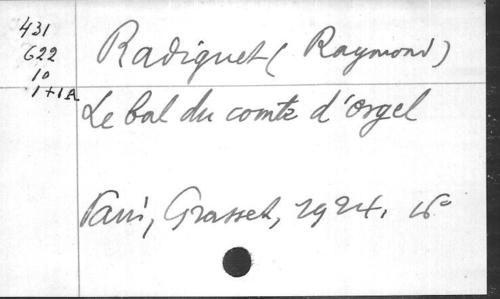 431
622
10
1+1A
Radiguet (Raymond)
Le bal du comte d'Orgel
Paris, Grasset, 1924, 16°